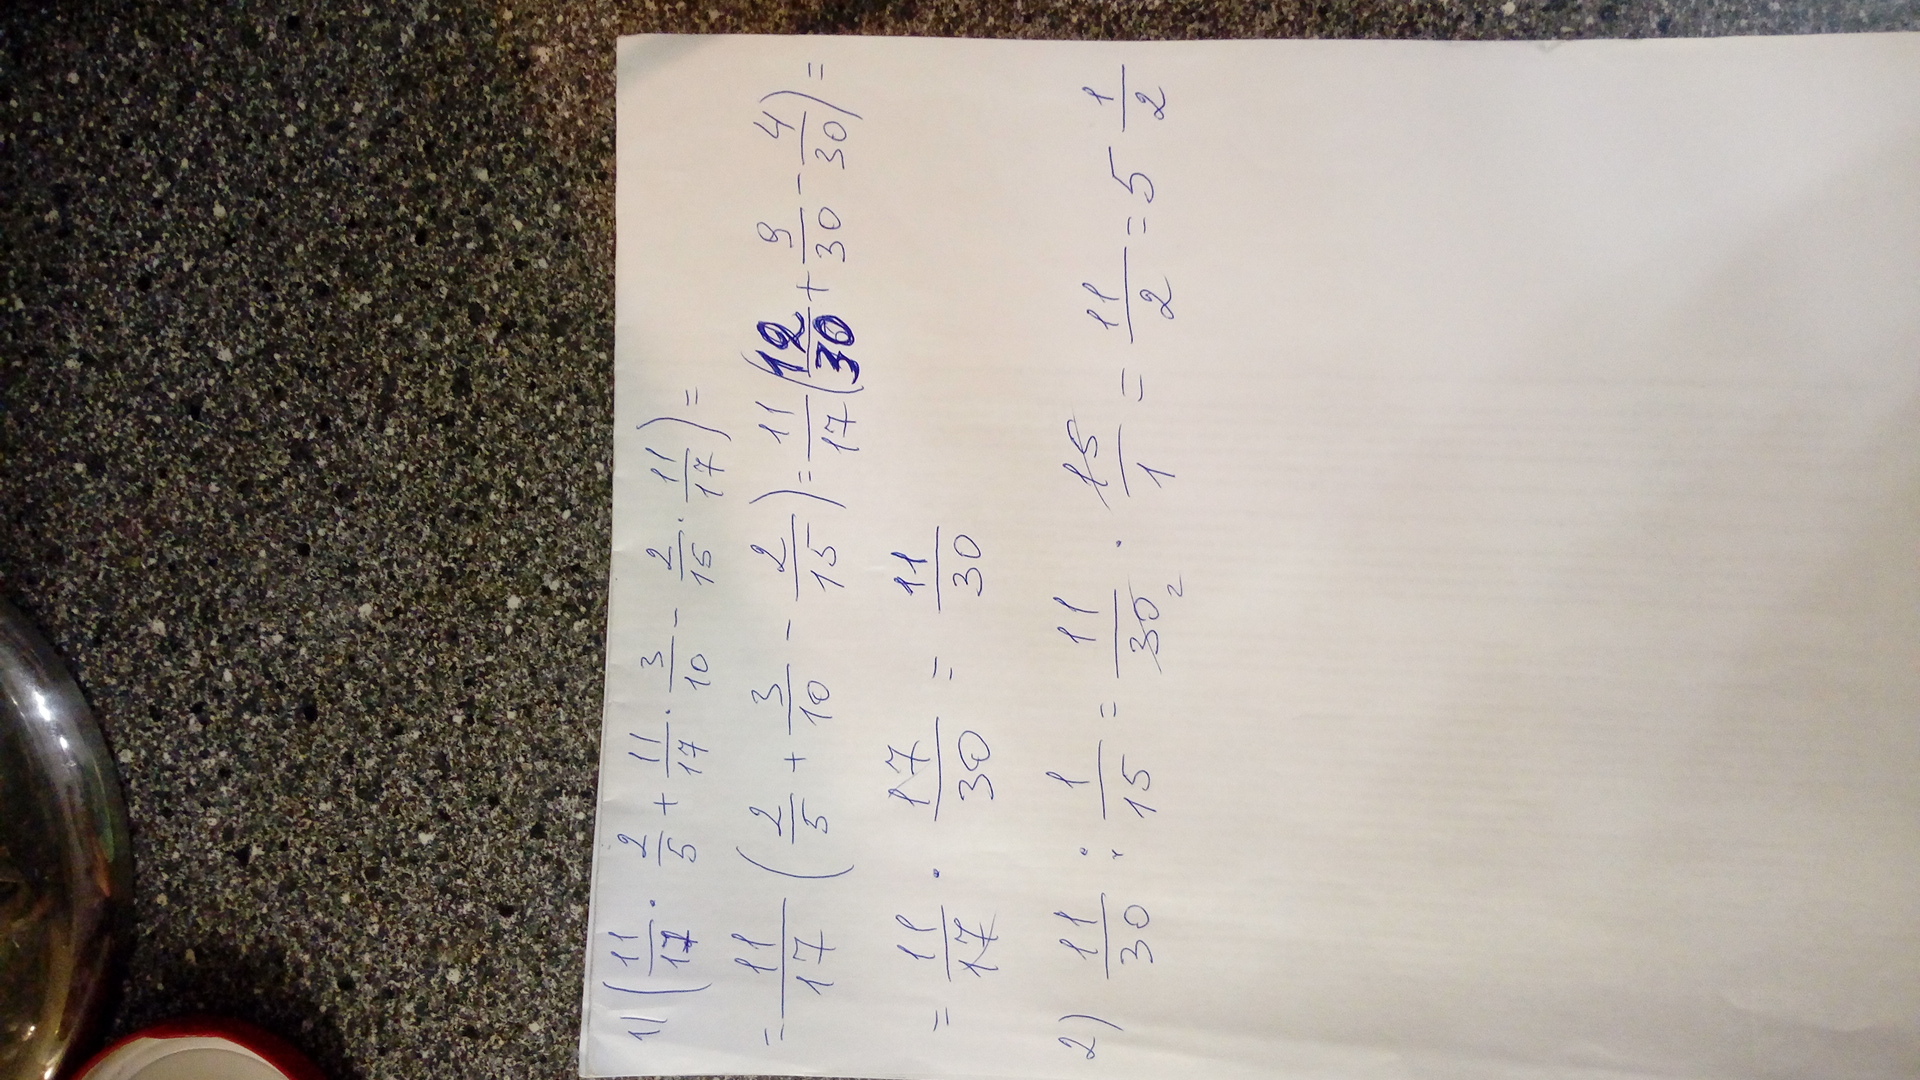 1) (11/17 · 2/5 + 11/17 · 3/10 - 2/15 · 11/17) =
= 11/17 (2/5 + 3/10 - 2/15) = 11/17 (12/30 + 9/30 - 4/30) =
= 11/17 · 17/30 = 11/30
2) 11/30 : 1/15 = 11/30 2 · 15/1 = 11/2 = 5 1/2